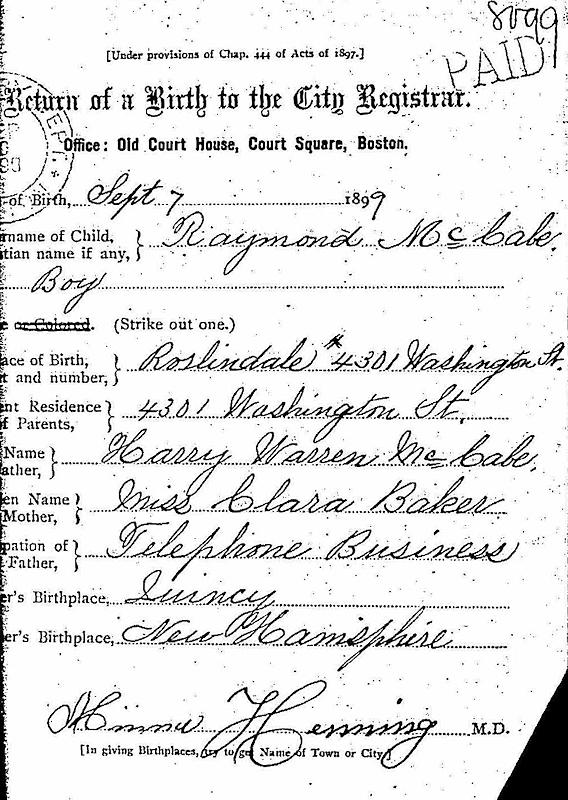 8099
[Under provisions of Chap. 444 of Acts of 1897.]
PAID
Return of a Birth to the City Registrar.
Office: Old Court House, Court Square, Boston.
of Birth, Sept 7 1899
rname of Child,
tian name if any, } Raymond McCabe.
Boy
e or Colored. (Strike out one.)
ace of Birth,
t and number, } Roslindale # 4301 Washington St.
nt Residence
f Parents, } 4301 Washington St.
Name
ather, } Harry Warren McCabe.
en Name
Mother, } Miss Clara Baker
pation of
Father, } Telephone Business
er's Birthplace, Quincy
er's Birthplace, New Hamsphire
Minna Henning M.D.
[In giving Birthplaces, try to get Name of Town or City.]